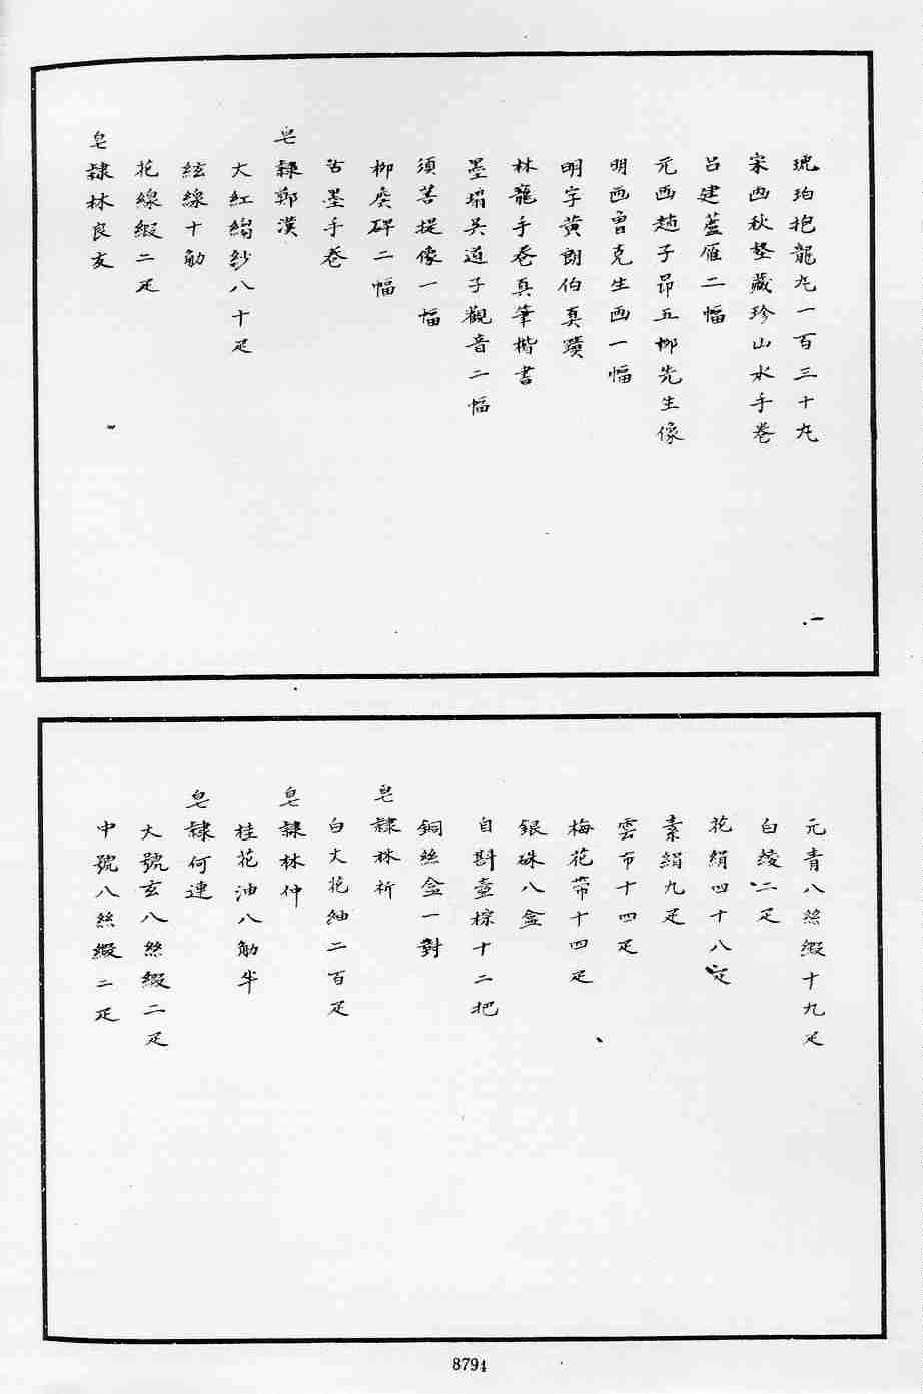 琥珀抱龍丸一百三十丸
宋画秋壑藏珍山水手卷
吕建蘆雁二幅
元画趙子昻五柳先生像
明画曾克生画一幅
明字黄朗伯真蹟
林龍手卷真筆楷書
墨塌吴道子觀音二幅
須菩提像一幅
柳侯碑二幅
古墨手卷
皂隸鄭漢
大紅縐紗八十疋
絃線十觔
花線緞二疋
皂隸林良友
元青八絲緞十九疋
白綾二疋
花絹四十八疋
素絹九疋
雲布十四疋
梅花帶十四疋
銀硃八盒
自斟壺棕十二把
銅絲盒一對
皂隸林祈
白大花紬二百疋
皂隸林仲
桂花油八觔半
皂隸何連
大號玄八絲緞二疋
中號八絲緞二疋
8794